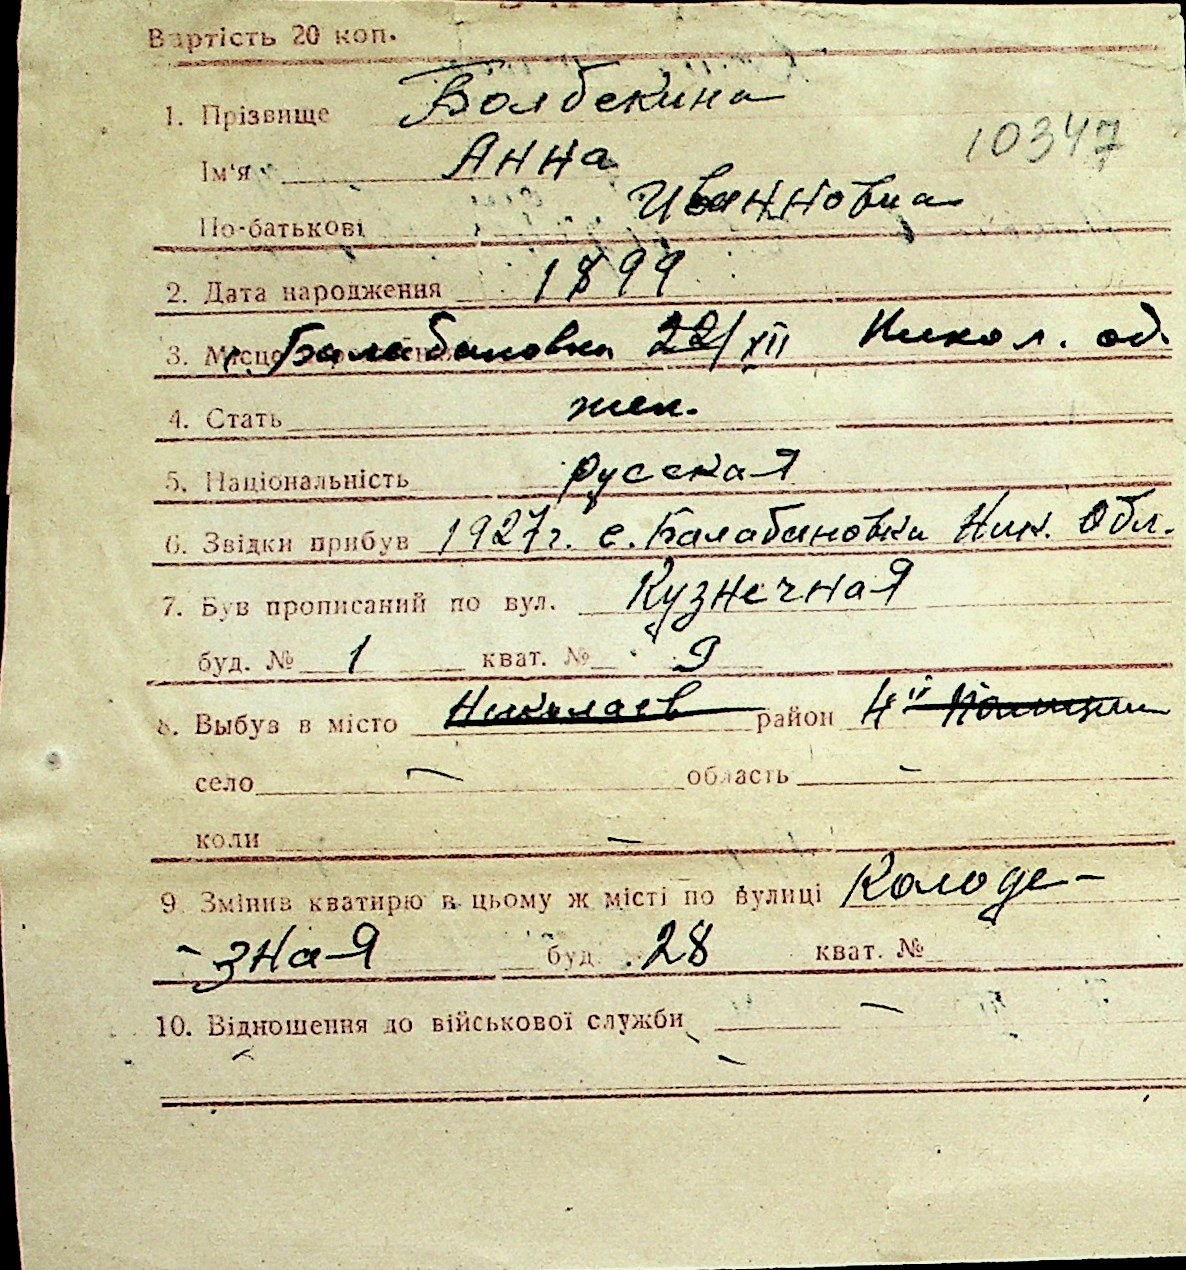 Вартість 20 коп.
1. Прізвище Болбекина
Ім'я Анна
10347
По-батькові Иванновна
2. Дата народження 1899
3. Місце с. Балабановка 22/XII Никол. об.
4. Стать жен.
5. Національність русская
6. Звідки прибув 1927 г. с. Балабановка Ник. Обл.
7. Був прописаний по вул. Кузнечная
буд. № 1 кват. № 9
8. Выбув в місто Николаев район 4й
село — область —
коли —
9 Змінив кватирю в цьому ж місті по вулиці Колоде-
-зная буд. 28 кват. №
10. Відношення до військової служби —